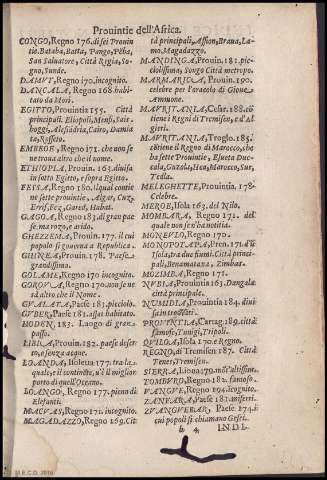 Prouintie dell'Africa.
CONGO, Regno 176. di sei Prouin
tie. Bataba, Batta, Pango, Pẽba,
San Saluatore, Città Regia, So-
gno, Sunde.
DAMVT, Regno 170. incognito.
DANCALA, Regno 168. habi-
tato da Mori.
EGITTO, Prouintie 155. Città
principali. Eliopoli, Menfi,
Alesãdria, Cairo, Damia
ta, Rossetto.
Regno 171. che non se
ne troua altro che il nome.
ETHIOPIA, Prouin. 163. diuisa
in sotto Egitto, e sopra Egitto.
FESSA, Regno 180. il qual contie
ne sette prouintie, Algar, Cuz,
Errif, Fez, Garet, Habat.
GAGOA, Regno 183. di gran pae
se, ma rozo, e arido.
GHEZZEMA, Prouin. 177. il cui
popolo si gouerna a Republica.
GHINEA, Prouin. 178. Paese
grandissimo.
GOLAME, Regno 170 incognito.
GOROVA, Regno 170. non se ne
sà altro che il Nome.
GVALATA, Paese 181. picciolo.
GVBER, Paese 181. assai habitato.
HODEN, 183. Luogo di gran
passo.
LIBIA, Prouin. 182. paese deser-
to, e senza acque.
LOANDA, Isoletta 177. tra la
quale, e il continẽte, v'è il miglior
porto di quell'Oceano.
LOANGO, Regno 177. pieno di
Elefanti.
MACVAS, Regno 171. incognito.
MAGADAZZO, Regno 169. Cit
tà principali, Assion, Braua, La-
mo, Magadazzo.
MANDINGA, Prouin. 181. pic-
ciolissima, Songo Città metropo.
MARMARICA, Prouin. 190.
celebre per l'oracolo di Gioue
Ammone.
MAVRITANIA, Cesar. 188. cõ
tiene i Regni di Tremisen, e d'Al
gieri.
MAVRITANIA, Troglo. 185.
cõtiene il Regno di Marocco, che
ha sette Prouintie, Esueta, Duc-
cala, Guzola, Hea, Marocco, Sus,
Tedla.
MELEGHETTE, Prouintia. 178.
Celebre.
MEROE, Isola 163. del Nilo.
MOMBARA, Regno 171. del
quale non sen'ha notitia.
Regno 170.
MONOPOTAPA, Prou. 171. d'vn
Isola, tra due fiumi. Città princi-
pali, Benamataxa, Zimbas.
MOZIMBA, Regno 171.
NVBIA, Prouintia 163. Dangala
città principale.
NVMIDIA, Prouintia 184. diui
sa in trè
PROVINTIA, Cartag. 189. città
famose, Tunigi, Tripoli.
QVILOA, Isola 170. e Regno.
REGNO, di Tremisen 187. Città
Tenes, Tremisen.
SIERRA, Liona 179. mõt'altissimo.
Regno 182. famoso.
Regno 194. incognito.
ZANFARA, Paese 182. misero.
ZVNGVEBAR, Paese 174. i
cui popoli si chiamano Gesei.
b 4 INDI-
M.E.C.D. 2016